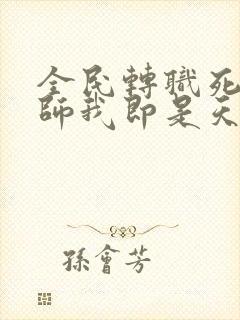 全民轉職死
師我即是天
孫會芳